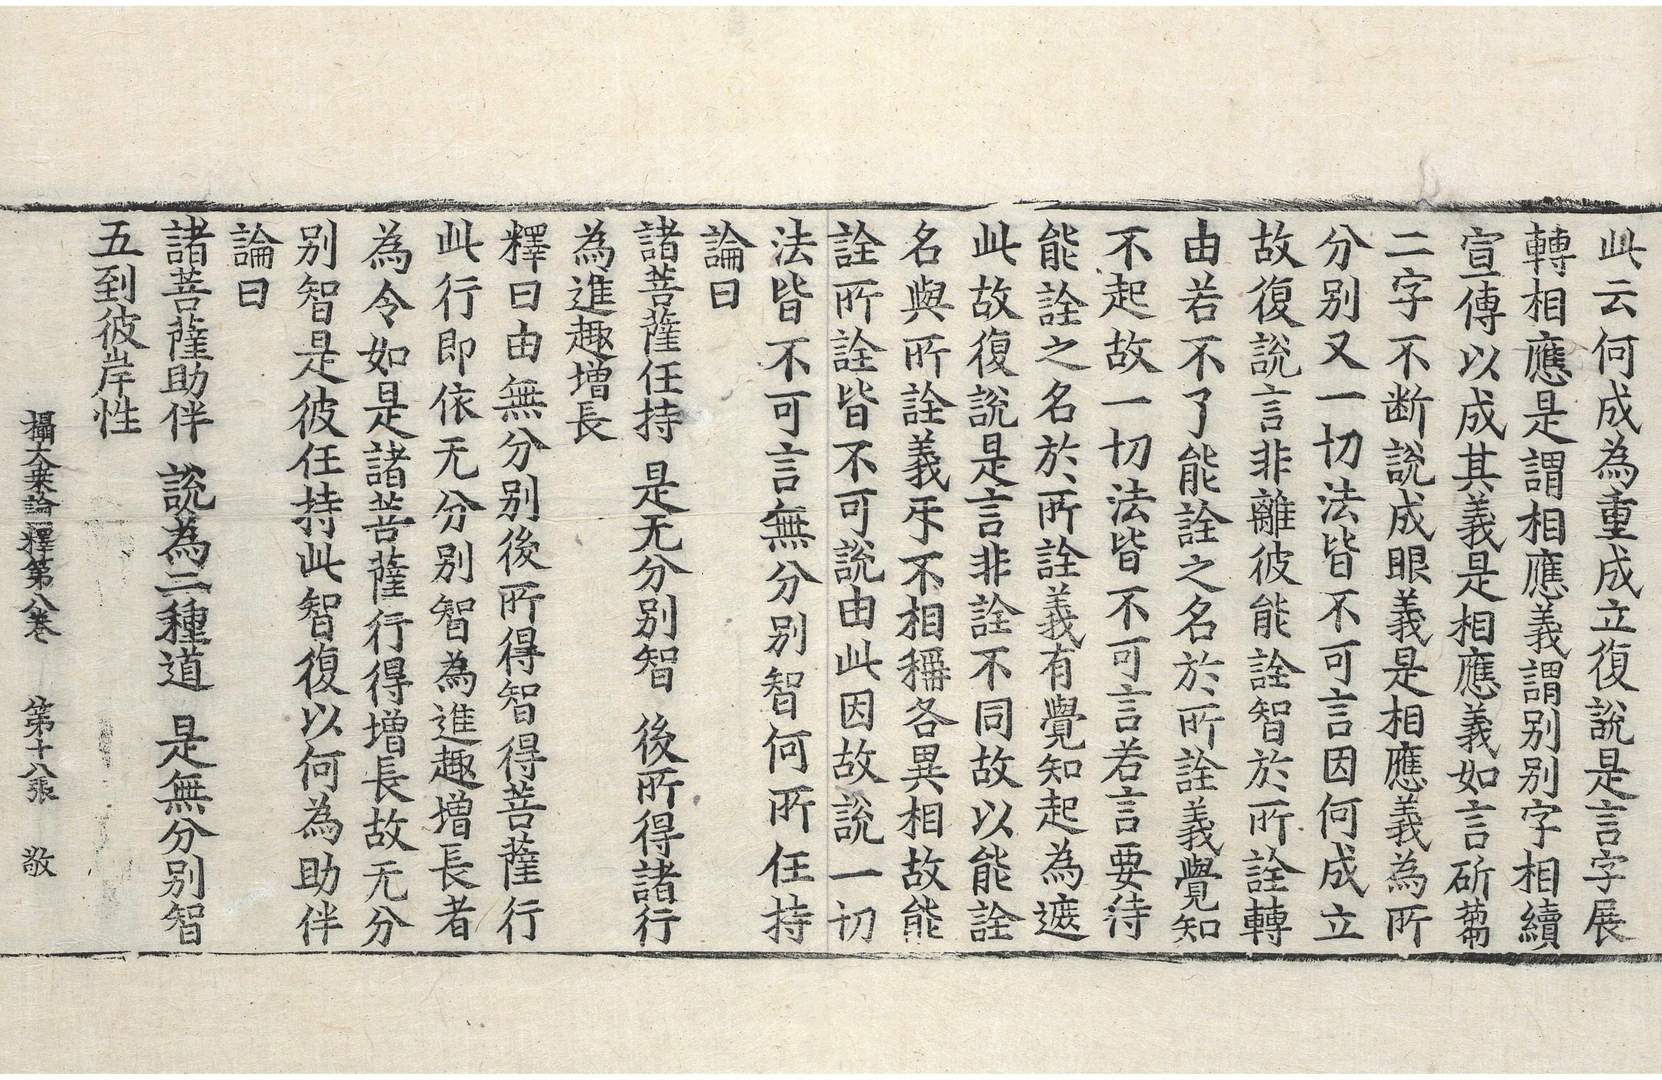 此云何成為重成立復說是言字展
轉相應是謂相應義謂別別字相續
宣傳以成其義是相應義如言斫蒭
二字不断說成眼義是相應義為所
分別又一切法皆不可言因何成立
故復說言非離彼能詮智於所詮轉
由若不了能詮之名於所詮義覺知
不起故一切法皆不可言若言要待
能詮之名於所詮義有覺知起為遮
此故復說是言非詮不同故以能詮
名與所詮義互不相稱各異相故能
詮所詮皆不可說由此因故說一切
法皆不可言無分別智何所任持
論曰
諸菩薩任持 是无分別智 後所得諸行
為進趣增長
釋曰由無分別後所得智得菩薩行
此行即依无分別智為進趣增長者
為令如是諸菩薩行得增長故无分
別智是彼任持此智復以何為助伴
論曰
諸菩薩助伴 說為二種道 是無分別智
五到彼岸性
攝大乗論釋第八卷 第十八張 敬